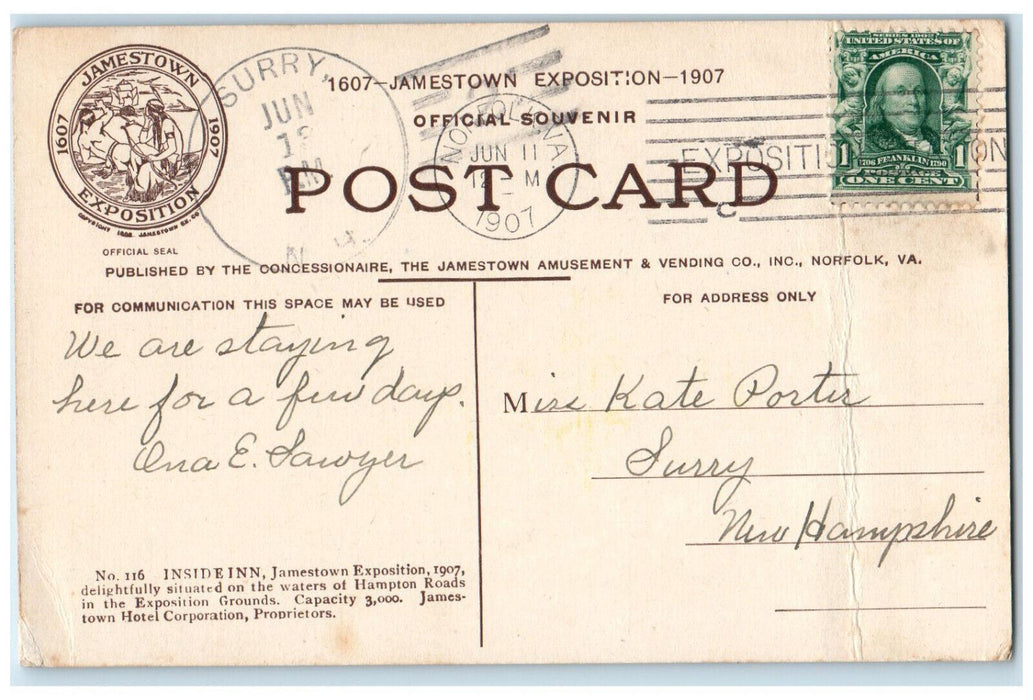 JAMESTOWN
1607 1907
EXPOSITION
COPYRIGHT 1906. JAMESTOWN EX. CO.
OFFICIAL SEAL
SURRY,
JUN
AM
N
1607–JAMESTOWN EXPOSITION–1907
OFFICIAL SOUVENIR
POST CARD
JUN 11
12 - M
1907
EXPOSITION
SERIES 1902
UNITED STATES OF
AMERICA
1 1706 FRANKLIN 1790 1
POSTAGE
ONE CENT
PUBLISHED BY THE CONCESSIONAIRE, THE JAMESTOWN AMUSEMENT & VENDING CO., INC., NORFOLK, VA.
FOR COMMUNICATION THIS SPACE MAY BE USED
We are staying
here for a few days.
Ona E. Sawyer
No. 116 INSIDE INN, Jamestown Exposition, 1907,
delightfully situated on the waters of Hampton Roads
in the Exposition Grounds. Capacity 3,000. James-
town Hotel Corporation, Proprietors.
FOR ADDRESS ONLY
Miss Kate Porter
Surry
New Hampshire